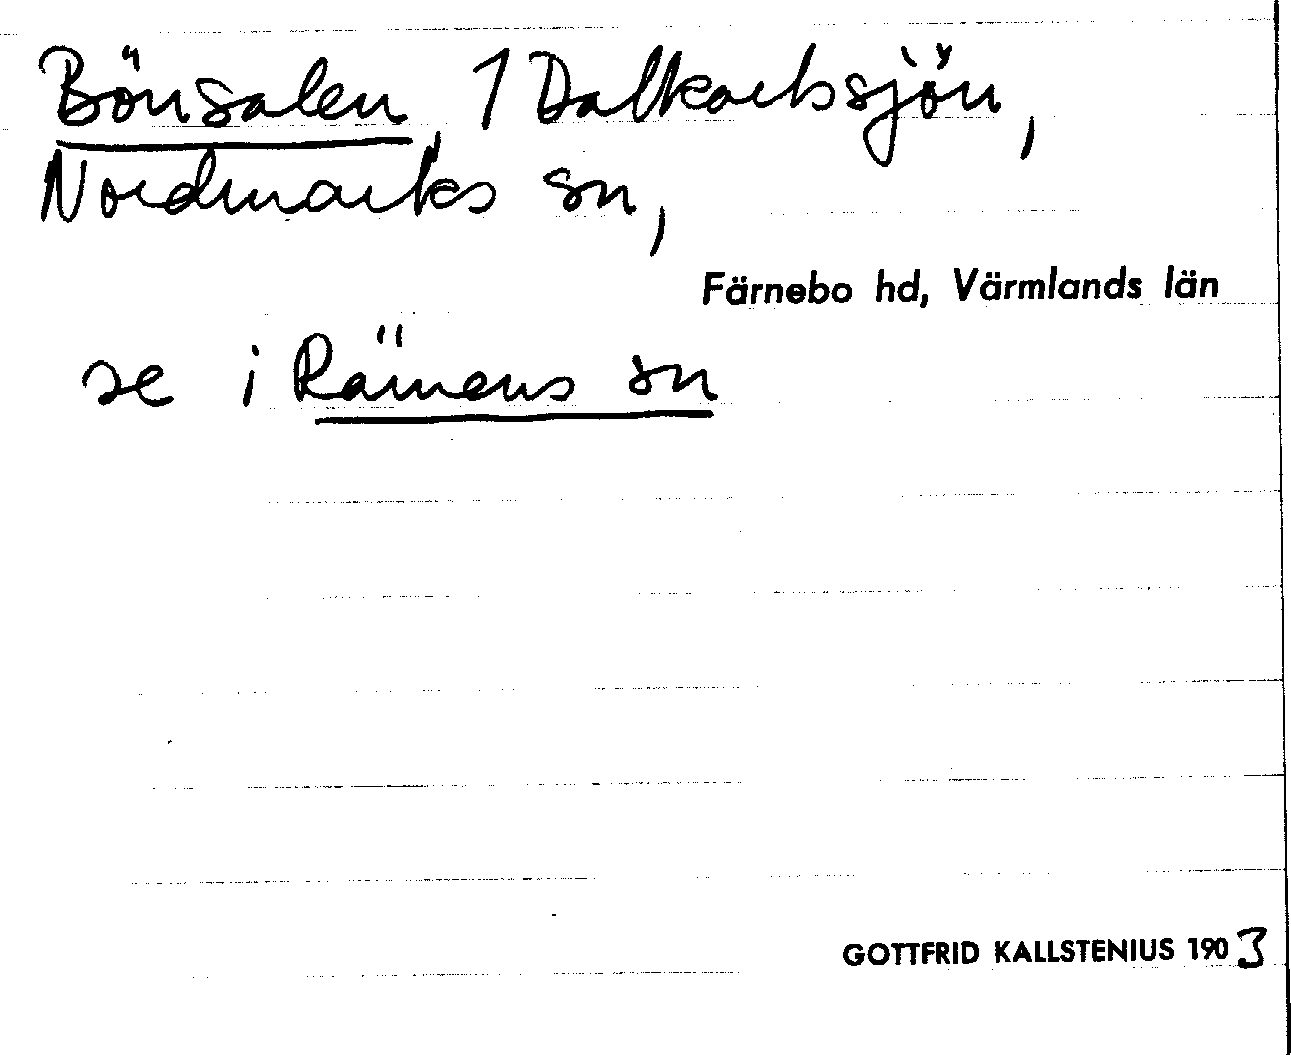 Bönsalen, 1 Dalkarlssjön,
Nordmarks sn,
Färnebo hd, Värmlands län
se i Rämens sn
GOTTFRID KALLSTENIUS 1903